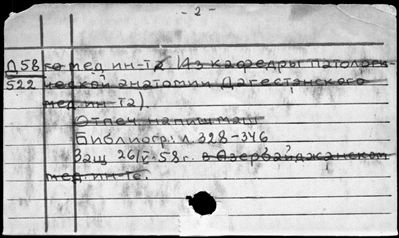 - 2 -
Д58 го мед. ин-та. (Из кафедры патологи-
522 ческой анатомии Дагестанского
мед. ин-та).
Отпеч. на пиш. маш.
Библиогр: л. 328-346
Защ 26/V-58г. в Азербайджанском
мед. ин-те.